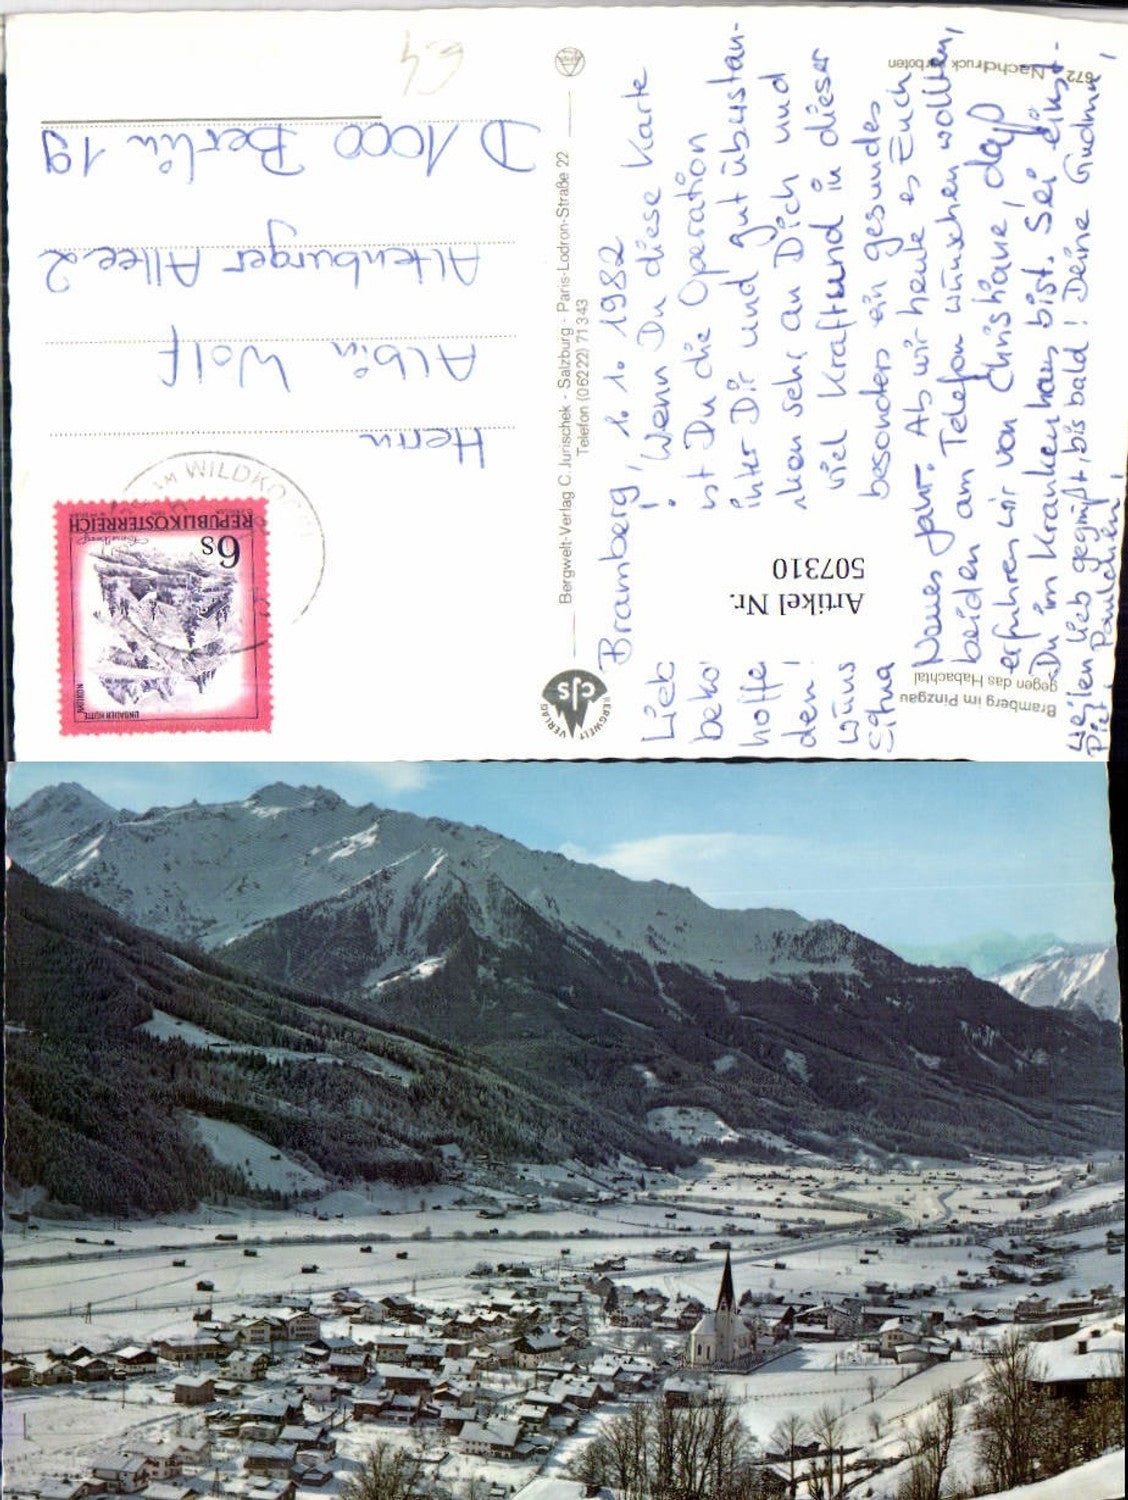 Bramberg, 1. 1. 1982
Lieb
! Wenn Du diese Karte
beko
st Du die Operation
hoffe
inter Dir und gut überstan-
den!
ken sehr an Dich und
wüns
viel Kraft und in dieser
Situa
besonders ein gesundes
Neues Jahr. Als wir heute es Euch
beiden am Telefon wünschen wollten,
erfuhren wir von Christiane, daß
Du im Krankenhaus bist. Sei einst-
weilen lieb gegrüßt, bis bald! Deine Gudrun,
Piet, Paulchen!
Artikel Nr.
507310
Bramberg im Pinzgau
gegen das Habachtal
672 Nachdruck verboten
BERGWELT VERLAG
CJS
Bergwelt-Verlag C. Jurischek - Salzburg - Paris-Lodron-Straße 22
Telefon (06222) 71343
AM WILDKO
REPUBLIK ÖSTERREICH
6 S
LINDAUER HÜTTE
RÄTIKON
Herrn
Albin Wolf
Altenburger Allee 2
D 1000 Berlin 19